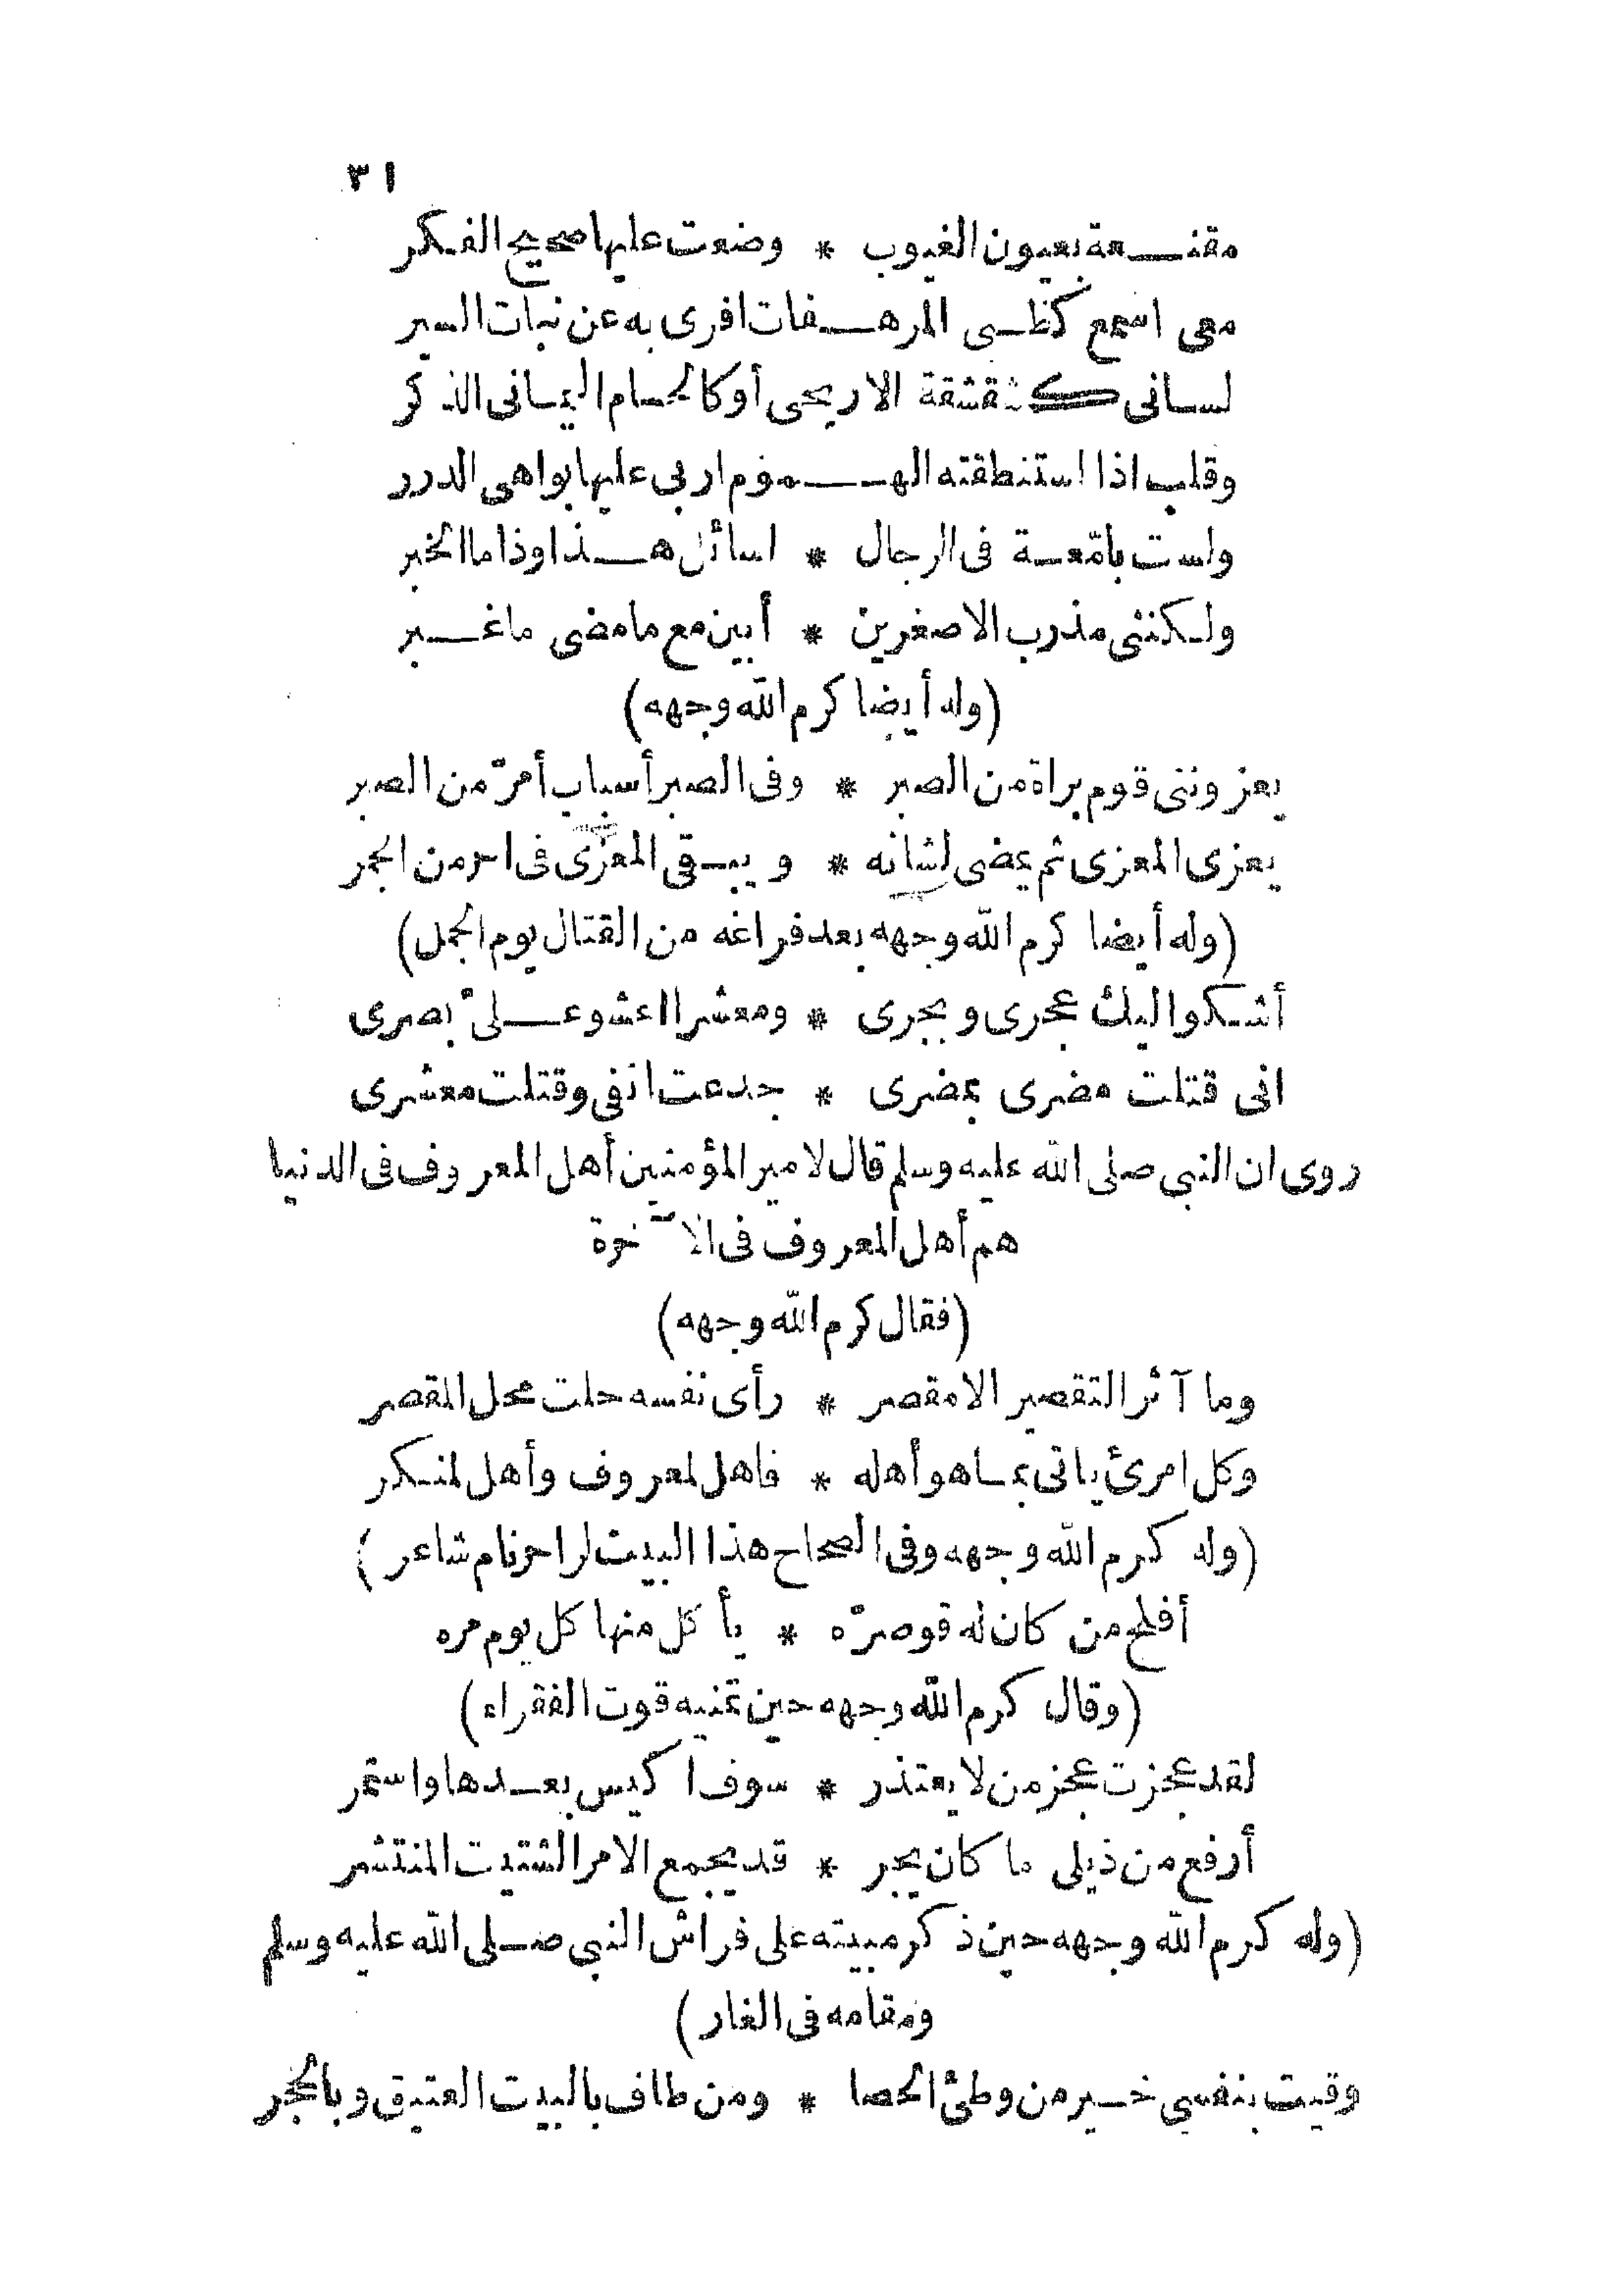 ٣١
مقنعة بعيون الغيوب * وضعت عليها صحيح الفكر
معى اصمع كظبى المرهفات افرى به عن نبات السير
لسانى كشقشقة الاريحى أو كالحسام اليمانى الذكر
وقلب اذا استنطقته الهموم اربى عليها بواهى الدرر
ولست بامّعة فى الرجال * اسائل هذا وذا ما الخبر
ولكننى مذرب الاصغرين * أبين مع ما مضى ما غبر
(وله أيضا كرم الله وجهه)
يعزوننى قوم براة من الصبر * وفى الصبر أسباب أمرّ من الصبر
يعزى المعزى ثم يمضى لشانه * ويبقى المعزّى فى احر من الجمر
(وله أيضا كرم الله وجهه بعد فراغه من القتال يوم الجمل)
أشكو اليك عجرى وبجرى * ومعشرا اعشوا علىّ بصرى
انى قتلت مضرى بمضرى * جدعت انفى وقتلت معشرى
روى ان النبي صلى الله عليه وسلم قال لامير المؤمنين أهل المعروف فى الدنيا
هم أهل المعروف فى الآخرة
(فقال كرم الله وجهه)
وما آثر التقصير الا مقصر * رأى نفسه حلت محل المقصر
وكل امرئ ياتى بما هو أهله * فاهل لمعروف وأهل لمنكر
(وله كرم الله وجهه وفى الصحاح هذا البيت لراجز نام شاعر)
أفلح من كان له قوصرّه * يأكل منها كل يوم مره
(وقال كرم الله وجهه حين تمنيه قوت الفقراء)
لقد عجزت عجز من لا يعتذر * سوف اكيس بعدها واستمر
أرفع من ذيلى ما كان يجر * قد يجمع الامر الشتيت المنتشر
(وله كرم الله وجهه حين ذكر مبيته على فراش النبي صلى الله عليه وسلم
ومقامه فى الغار)
وقيت بنفسي خير من وطئ الحصا * ومن طاف بالبيت العتيق وبالحجر